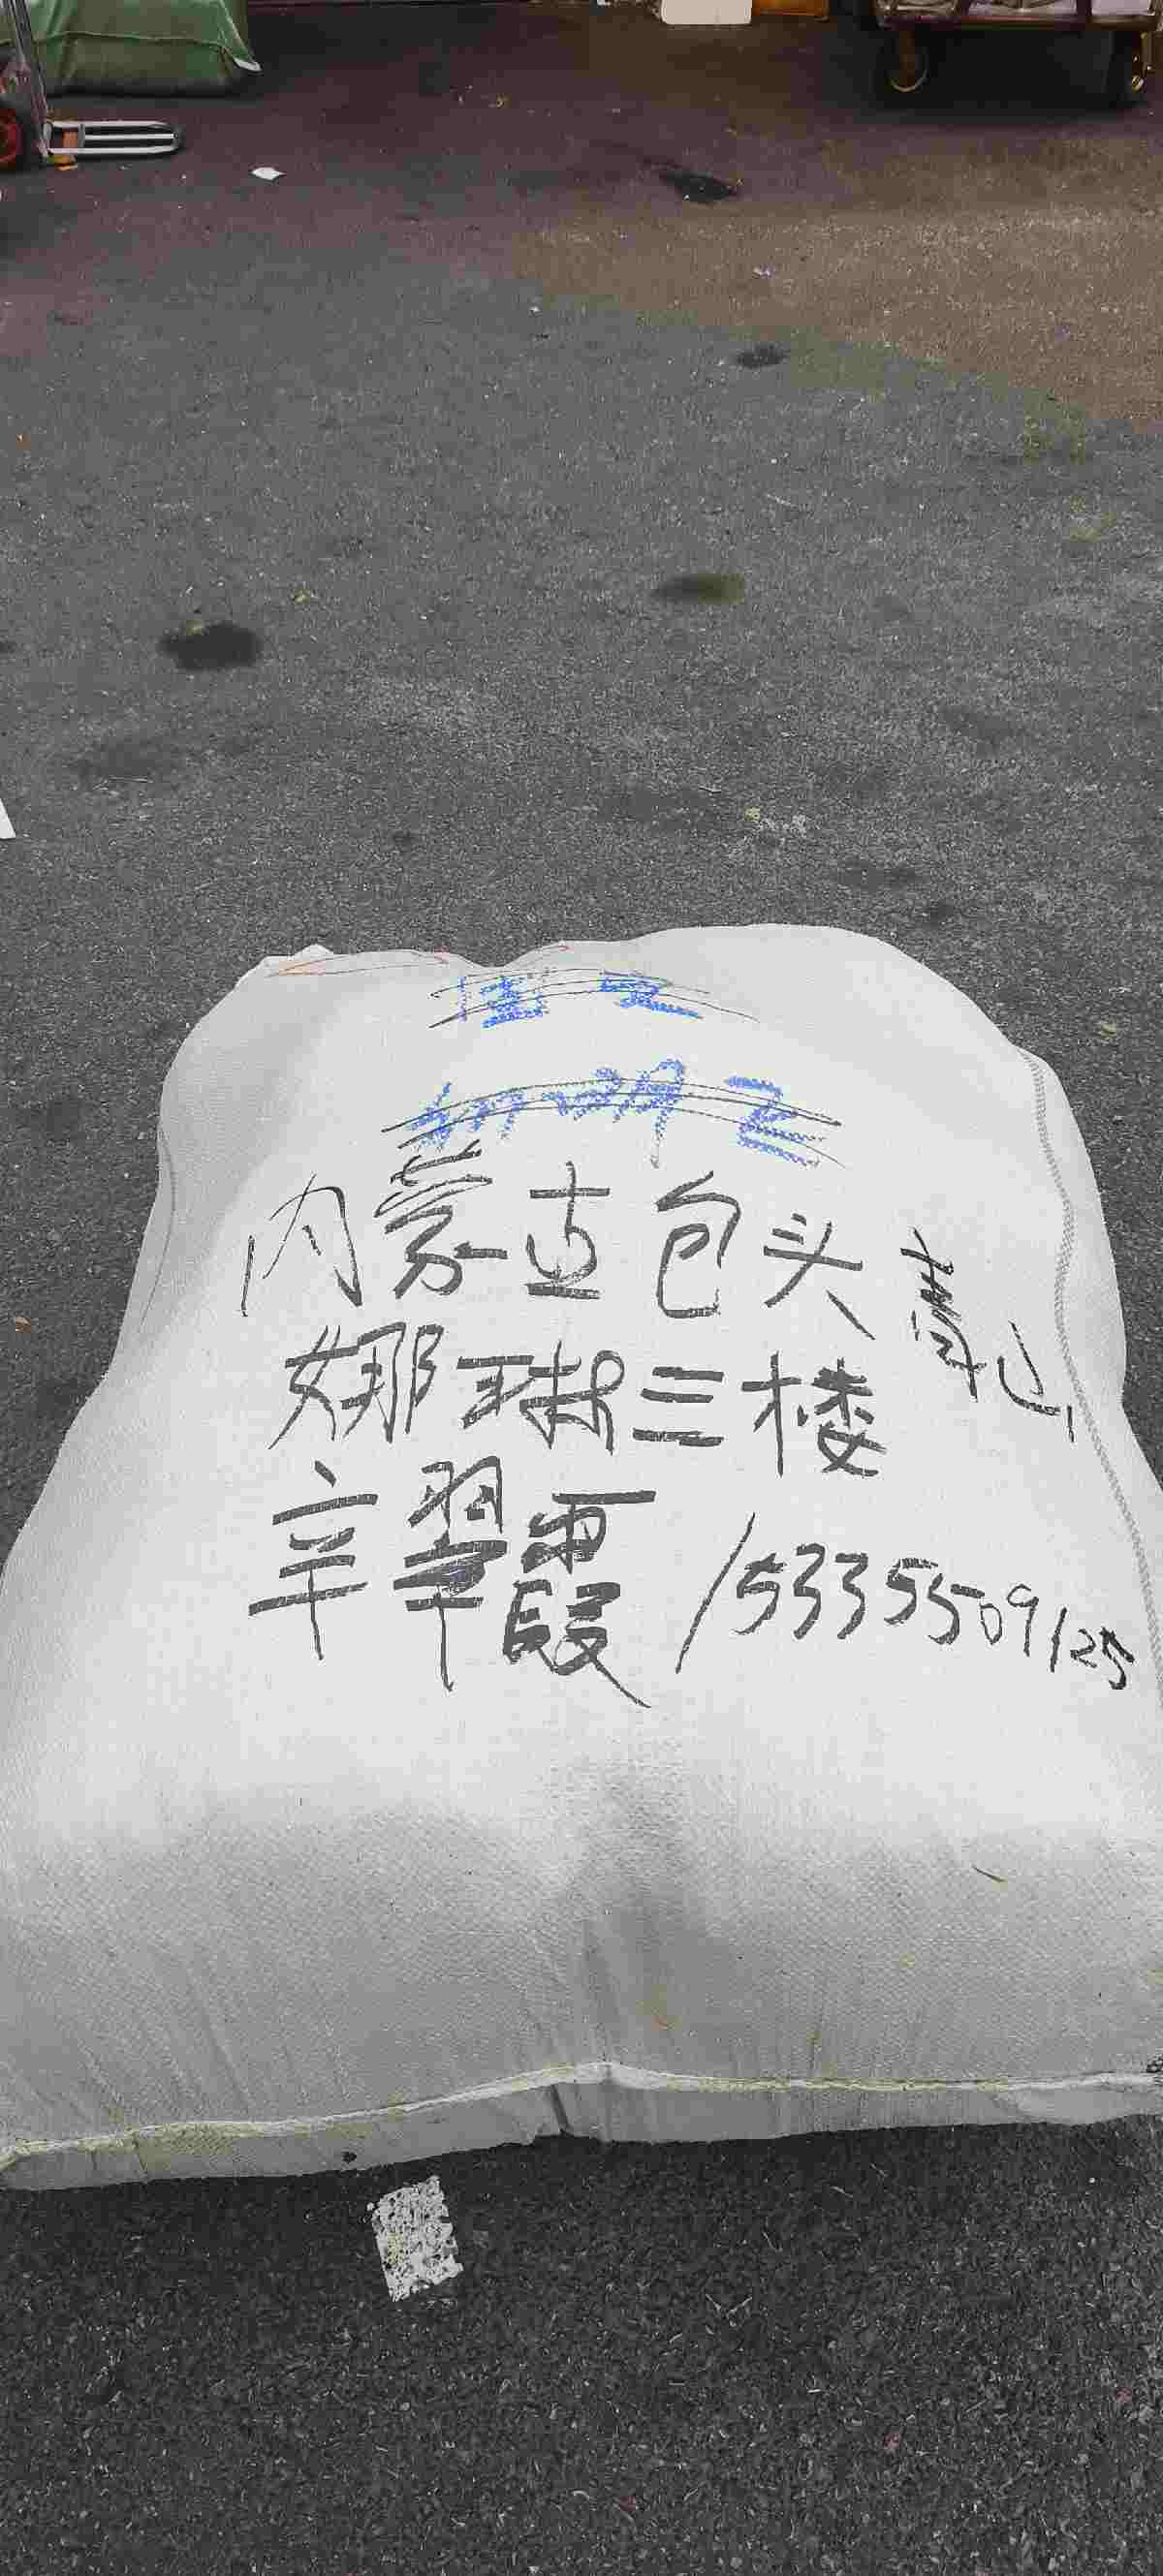 内蒙古包头
青山
娜琳三楼
辛翠霞 15335509125